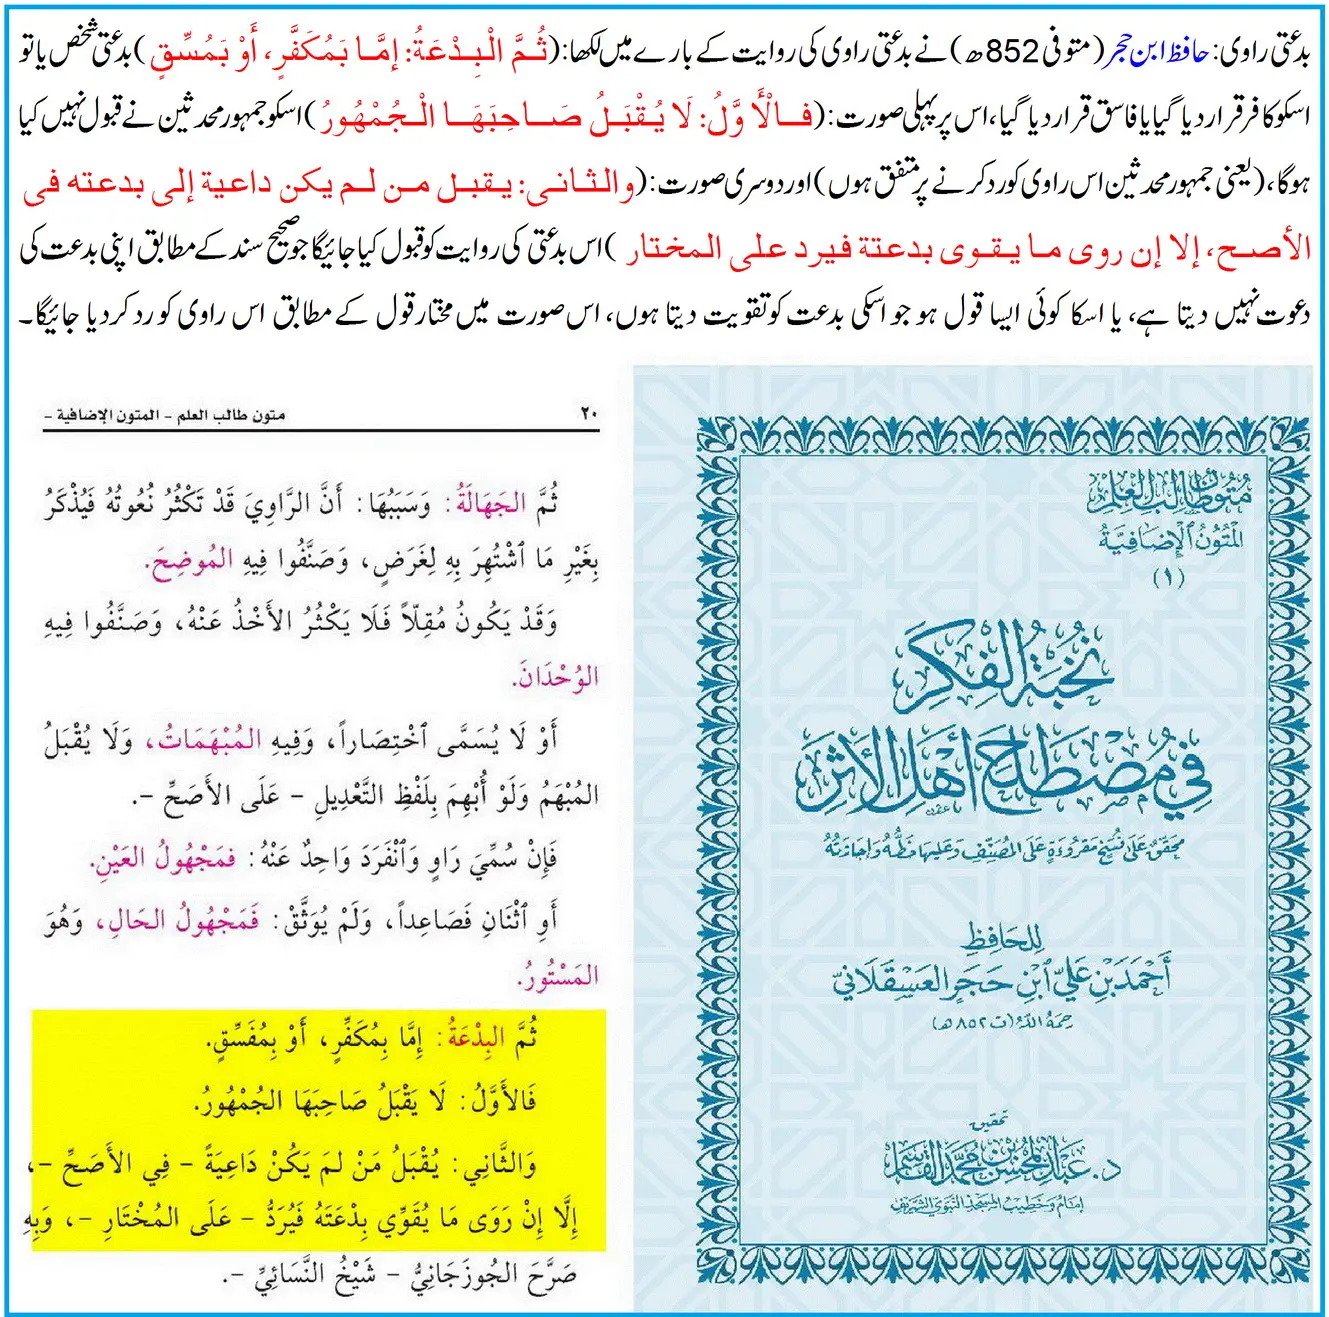 بدعتی راوی: حافظ ابن حجر (متوفی 852ھ) نے بدعتی راوی کی روایت کے بارے میں لکھا: (ثُمَّ الْبِدْعَةُ: إمَّا بَمُكَفَّرٍ، أَوْ بَمُسِّقٍ) بدعتی شخص یا تو
اسکو کافر قرار دیا گیا یا فاسق قرار دیا گیا، اس پر پہلی صورت: (فالْأوَّلُ: لَا يُقْبَلُ صَاحِبَهَا الْجُمْهُورُ) اسکو جمہور محدثین نے قبول نہیں کیا
ہوگا، (یعنی جمہور محدثین اس راوی کو رد کرنے پر متفق ہوں) اور دوسری صورت: (والثانی: یقبل من لم یکن داعیة إلی بدعته فی
الأصح، إلا إن روی ما یقوی بدعتة فیرد علی المختار) اس بدعتی کی روایت کو قبول کیا جائیگا جو صحیح سند کے مطابق اپنی بدعت کی
دعوت نہیں دیتا ہے، یا اسکا کوئی ایسا قول ہو جو اسکی بدعت کو تقویت دیتا ہوں، اس صورت میں مختار قول کے مطابق اس راوی کو رد کردیا جائیگا۔
٢٠
متون طالب العلم - المتون الإضافية -
ثُمَّ الجَهَالَةُ: وَسَبَبُهَا: أَنَّ الرَّاوِيَ قَدْ تَكْثُرُ نُعُوتُهُ فَيُذْكَرُ
بِغَيْرِ مَا ٱشْتُهِرَ بِهِ لِغَرَضٍ، وَصَنَّفُوا فِيهِ المُوضِحَ.
وَقَدْ يَكُونُ مُقِلّاً فَلَا يَكْثُرُ الأَخْذُ عَنْهُ، وَصَنَّفُوا فِيهِ
الوُحْدَانَ.
أَوْ لَا يُسَمَّى ٱخْتِصَاراً، وَفِيهِ المُبْهَمَاتُ، وَلَا يُقْبَلُ
المُبْهَمُ وَلَوْ أُبْهِمَ بِلَفْظِ التَّعْدِيلِ - عَلَى الأَصَحِّ -.
فَإِنْ سُمِّيَ رَاوٍ وَٱنْفَرَدَ وَاحِدٌ عَنْهُ: فمَجْهُولُ العَيْنِ.
أَوِ ٱثْنَانِ فَصَاعِداً، وَلَمْ يُوَثَّقْ: فَمَجْهُولُ الحَالِ، وَهُوَ
المَسْتُورُ.
ثُمَّ البِدْعَةُ: إِمَّا بِمُكَفِّرٍ، أَوْ بِمُفَسِّقٍ.
فَالأَوَّلُ: لَا يَقْبَلُ صَاحِبَهَا الجُمْهُورُ.
وَالثَّانِي: يُقْبَلُ مَنْ لَمَ يَكُنْ دَاعِيَةً - فِي الأَصَحِّ -،
إِلَّا إِنْ رَوَى مَا يُقَوِّي بِدْعَتَهُ فَيُرَدُّ - عَلَى المُخْتَارِ -، وَبِهِ
صَرَّحَ الجُوزَجَانِيُّ - شَيْخُ النَّسَائِيِّ -.
مُتُونُ طَالِبِ العِلْمِ
المُتُونُ الإِضَافِيَّةُ
(١)
نُخْبَةُ الفِكَرِ
فِي مُصْطَلَحِ أَهْلِ الأَثَرِ
مُحَقَّقٌ عَلَى نُسَخٍ مَقْرُوءَةٍ عَلَى المُصَنِّفِ وَعَلَيْهَا خَطُّهُ وَإِجَازَتُهُ
لِلحَافِظِ
أَحْمَدَ بْنِ عَلِيِّ ٱبْنِ حَجَرٍ العَسْقَلَانِيِّ
رحمه الله (ت ٨٥٢ هـ)
تحقيق
د. عبد المحسن بن محمد القاسم
إمام وخطيب المسجد النبوي الشريف